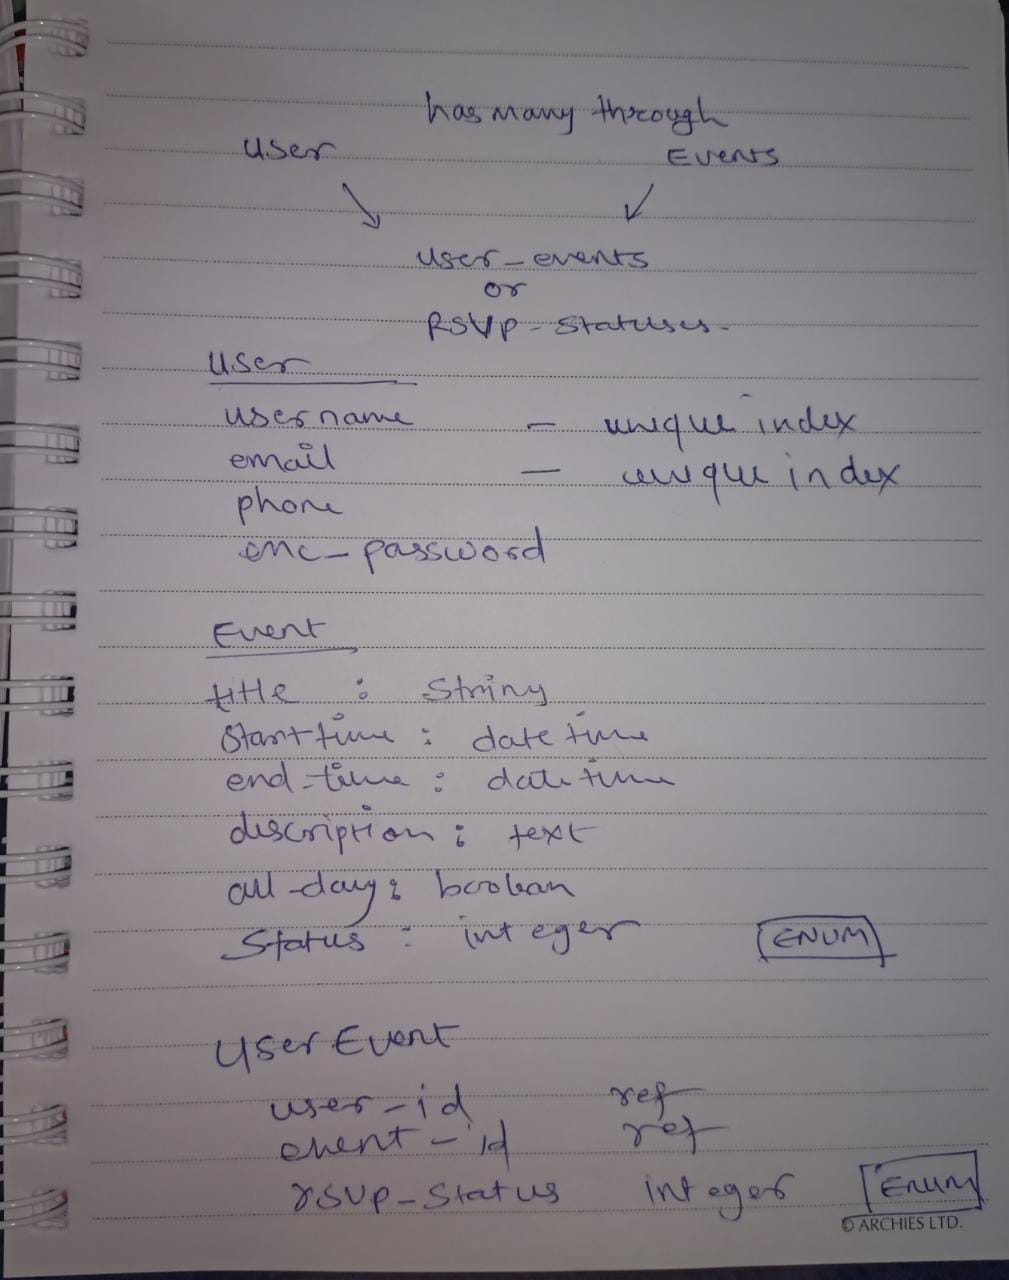 has many through
User Events
user_events
or
RSVP-statuses.
User
username - unique index
email - unique index
phone
enc-password
Event
title : String
start time : date time
end-time : date time
description : text
all-day : boolean
Status : integer ENUM
User Event
user-id ref
event-id ref
rsvp-status integer ENUM
© ARCHIES LTD.